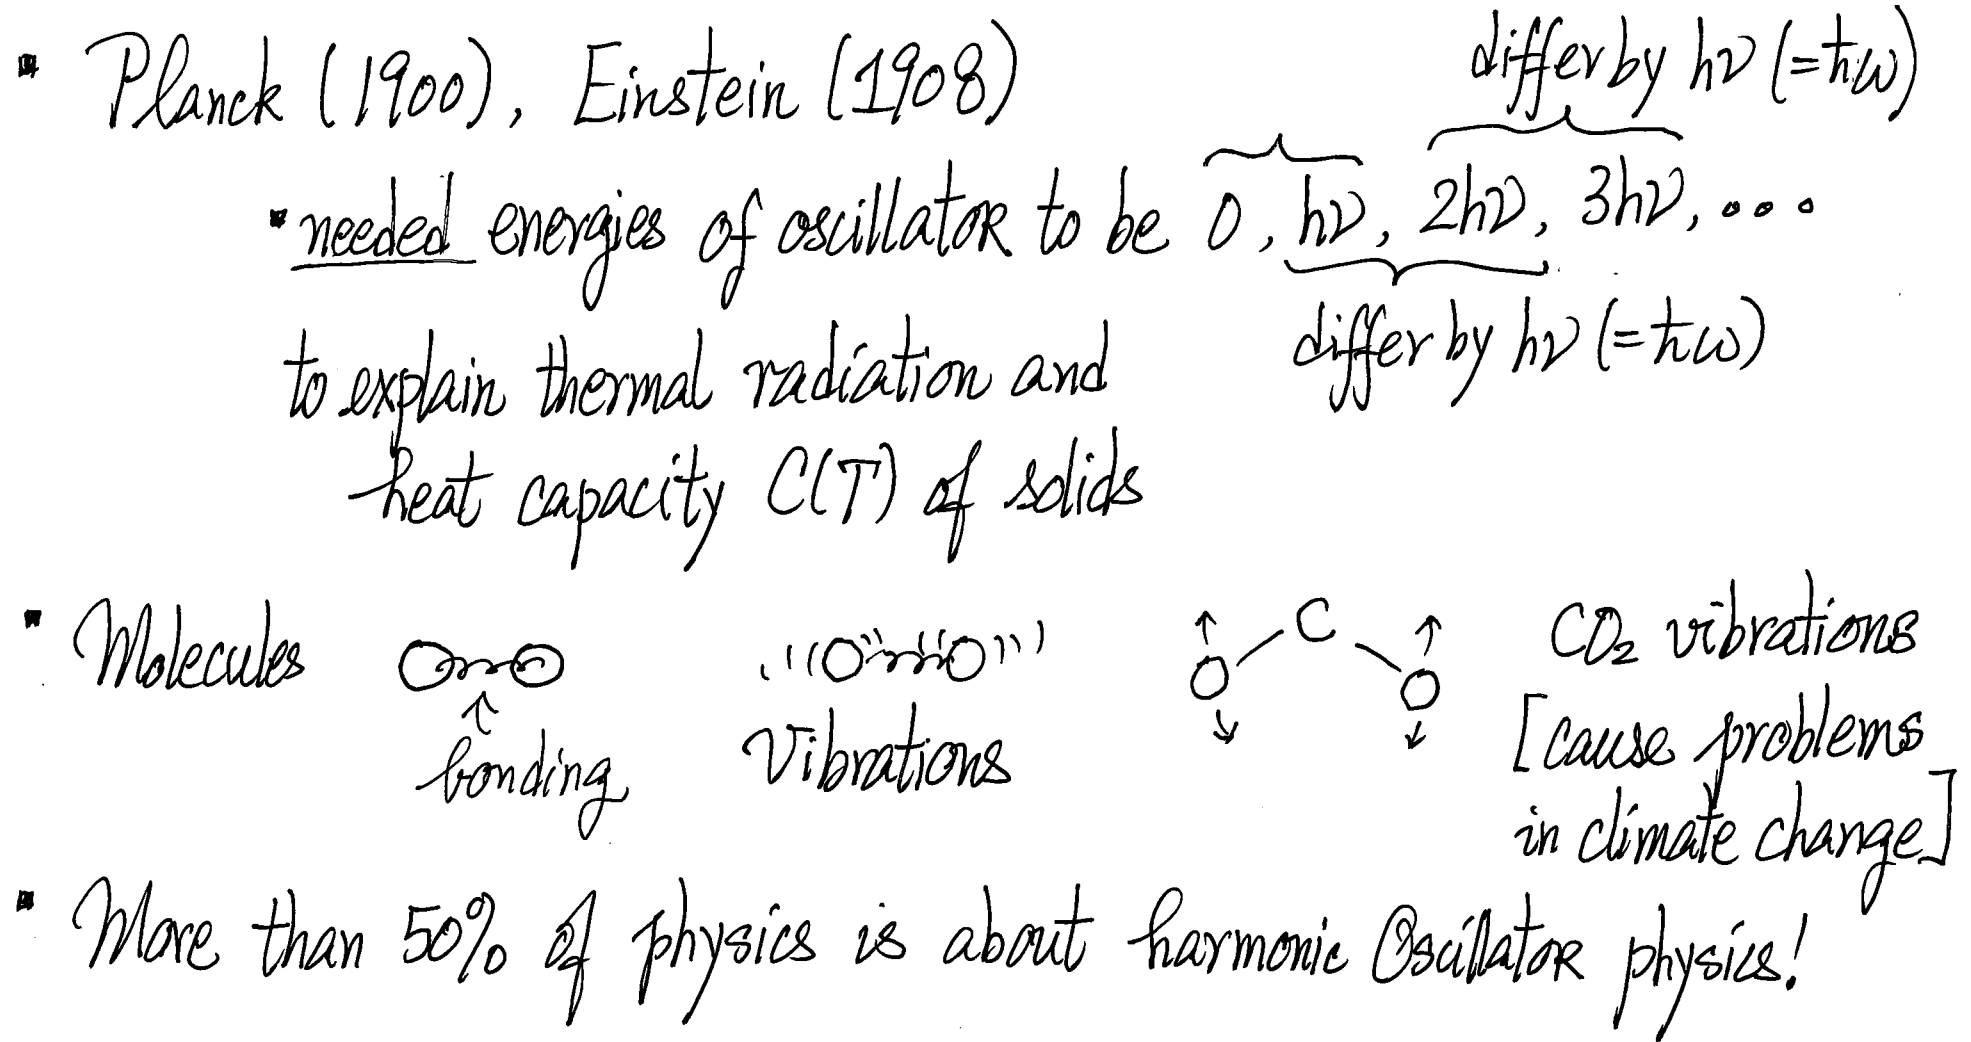 ▪ Planck (1900), Einstein (1908)
differ by hν (=ħω)
▪ needed energies of oscillator to be 0, hν, 2hν, 3hν, ...
differ by hν (=ħω)
to explain thermal radiation and
heat capacity C(T) of solids
▪ Molecules
C
O O
CO₂ vibrations
bonding
Vibrations
[cause problems
in climate change]
▪ More than 50% of physics is about harmonic Oscillator physics!